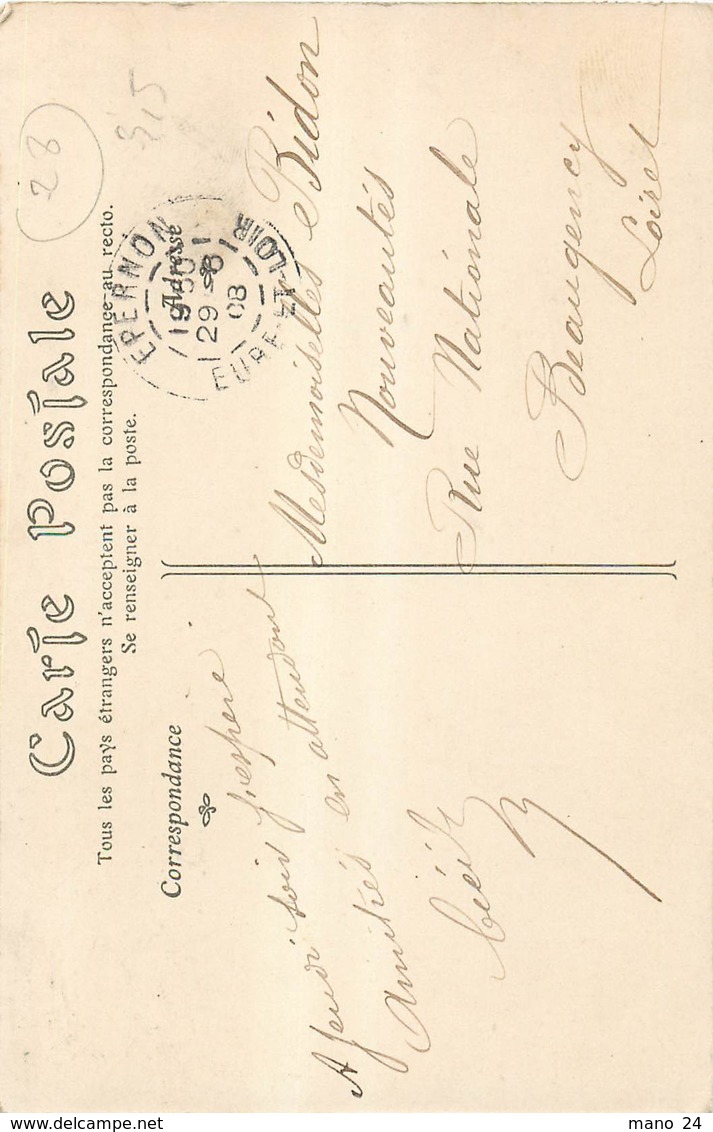 Carte Postale
Tous les pays étrangers n'acceptent pas la correspondance au recto.
Se renseigner à la poste.
Correspondance
A Jeudi soir j'espère
en attendant
Amitiés
Adresse
Mesdemoiselles Bidon
Nouveautés
Rue Nationale
Beaugency
Loiret
EPERNON
29 - 8
08
EURE-ET-LOIR
28
315
www.delcampe.net
mano 24